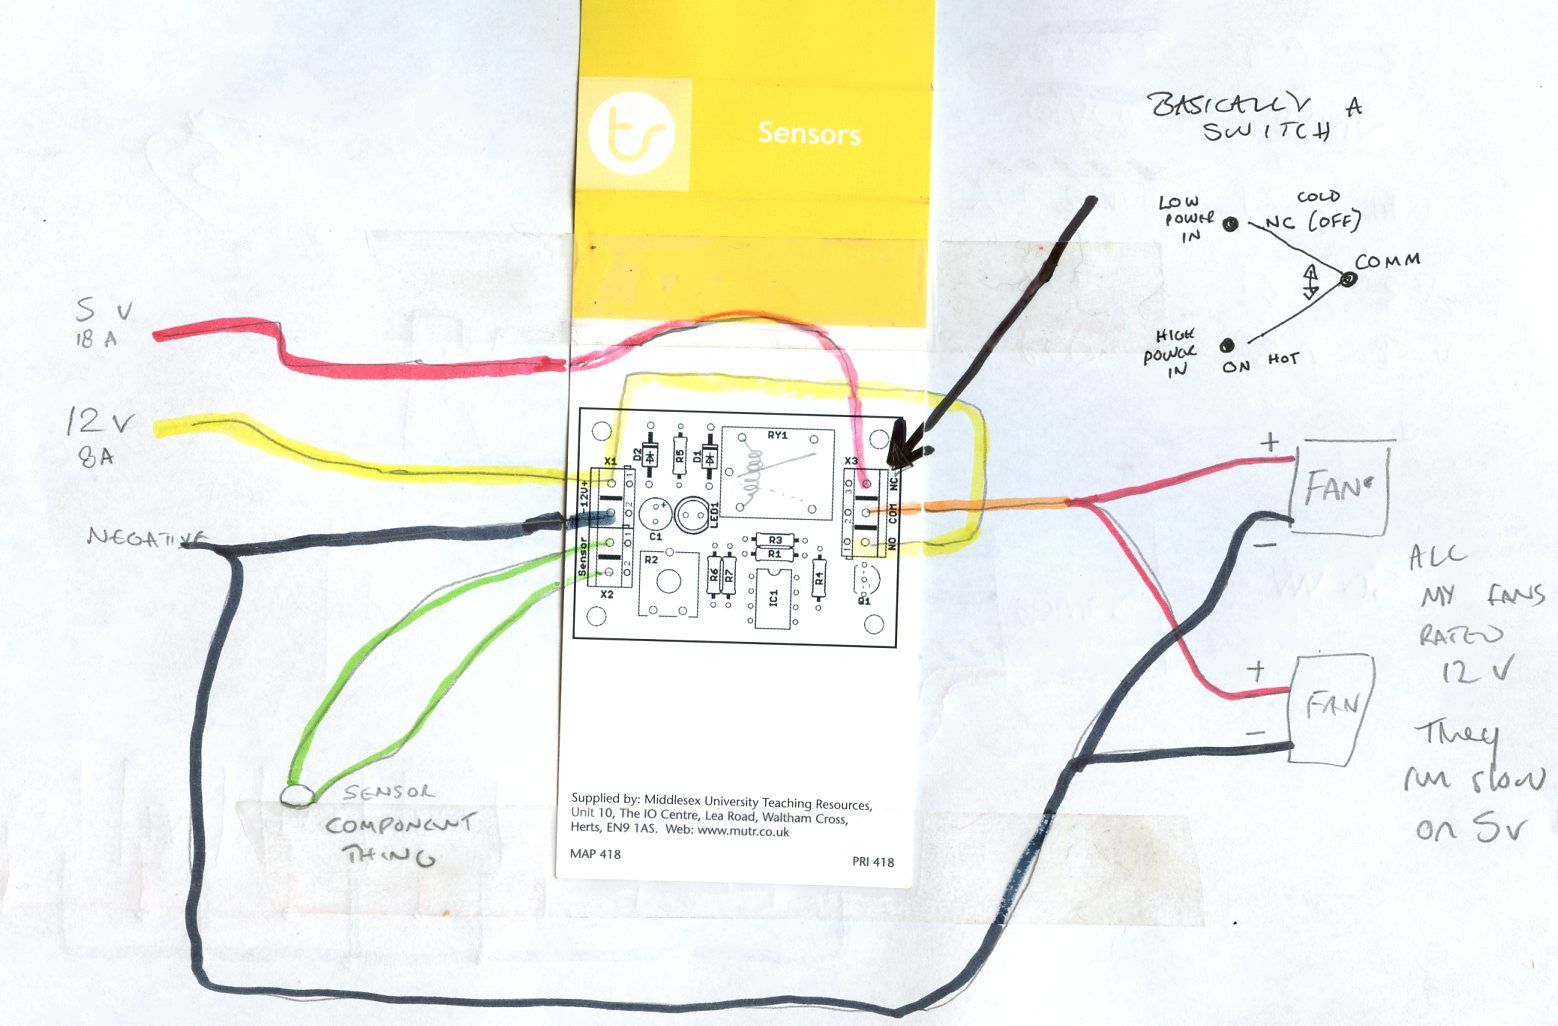 ts
Sensors
BASICALLY A
SWITCH
LOW
POWER
IN
COLD
NC (OFF)
COMM
HIGH
POWER
IN
ON HOT
5 V
18 A
12 V
8A
NEGATIVE
X1
-12V+
Sensor
X2
D2
R5
D1
RY1
X3
NC
COM
NO
C1
LED1
R2
R6
R7
R3
R1
IC1
R4
Q1
1
2
1
2
3
2
1
+
FAN
-
+
FAN
-
ALL
MY FANS
RATED
12 V
They
run slow
on 5v
SENSOR
COMPONENT
THING
Supplied by: Middlesex University Teaching Resources,
Unit 10, The IO Centre, Lea Road, Waltham Cross,
Herts, EN9 1AS. Web: www.mutr.co.uk
MAP 418
PRI 418